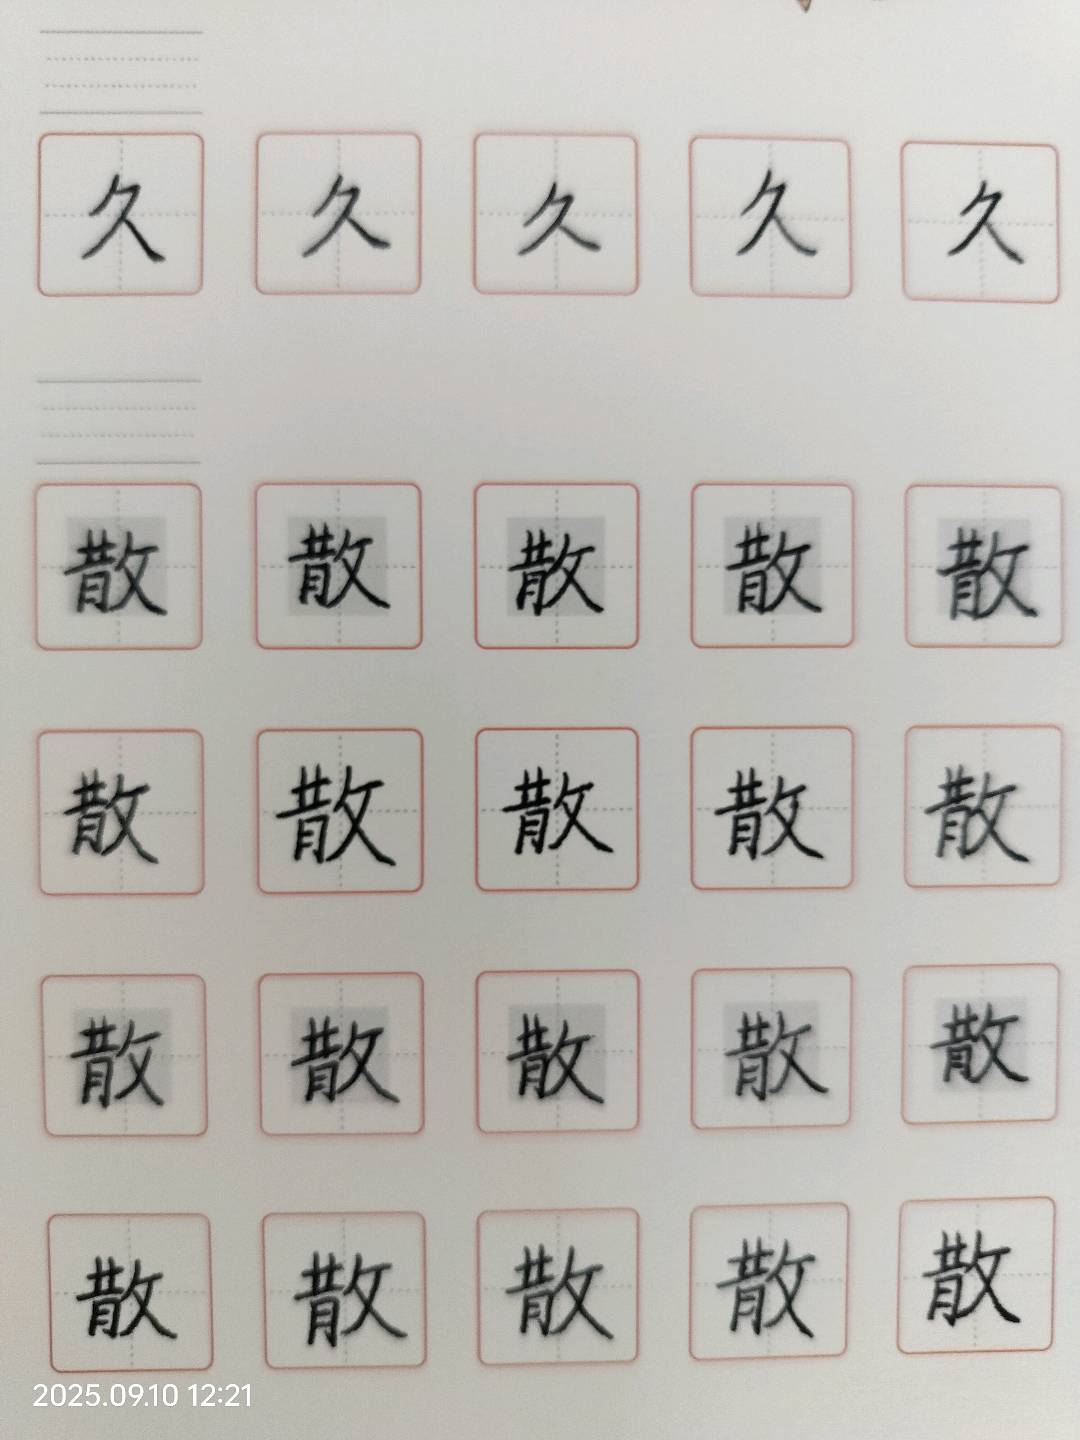 久 久 久 久 久
散 散 散 散 散
散 散 散 散 散
散 散 散 散 散
散 散 散 散 散
2025.09.10 12:21